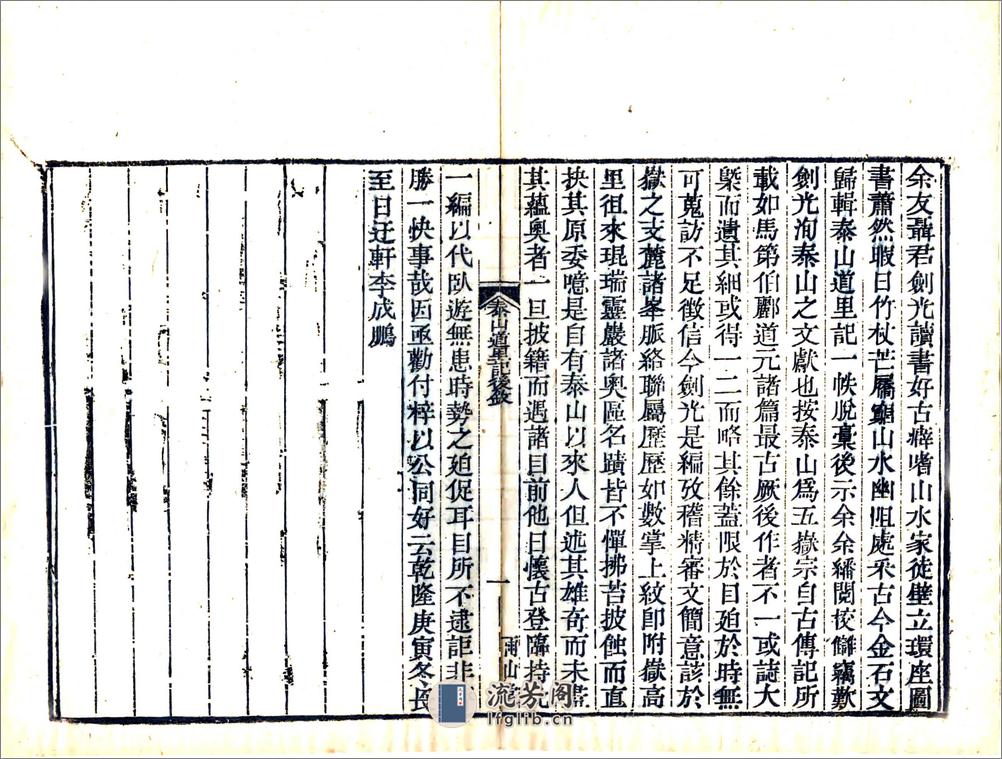 余友聶君劍光讀書好古癖嗜山水家徒壁立環座圖
書蕭然暇日竹杖芒屩窮山水幽阻處采古今金石文
歸輯泰山道里記一帙脫稾後示余余繙閱挍讎竊歎
劍光洵泰山之文獻也按泰山爲五嶽宗自古傳記所
載如馬第伯酈道元諸篇最古厥後作者不一或誌大
槩而遺其細或得一二而略其餘蓋限於目廹於時無
可蒐訪不足徵信今劍光是編攷稽精審文簡意該於
嶽之支麓諸峯脈絡聯屬歷歷如數掌上紋卽附嶽高
里徂來琨瑞靈巖諸奧區名蹟皆不憚拂苔披蝕而直
抉其原委噫是自有泰山以來人但述其雄奇而未盡
其蘊奧者一旦披籍而遇諸目前他日懷古登臨持
泰山道里記後敘
一
雨山堂
一編以代臥遊無患時勢之廹促耳目所不逮詎非
勝一快事哉因亟勸付梓以公同好云乾隆庚寅冬長
至日迂軒李成鵬
流芳阁
lfglib.cn